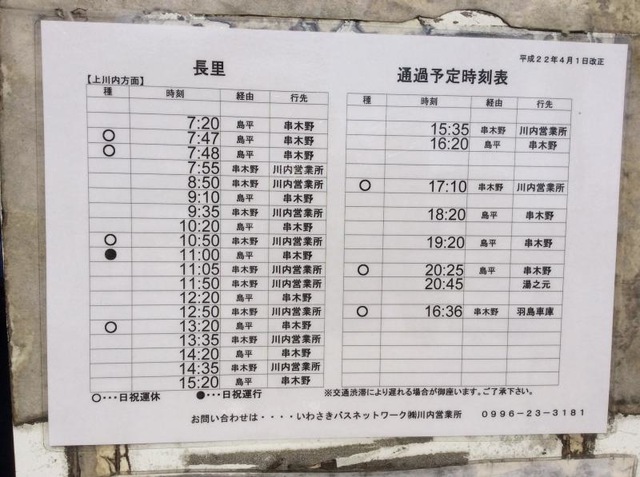 平成22年4月1日改正
長里 通過予定時刻表
【上川内方面】
種 時刻 経由 行先
7:20 島平 串木野
○ 7:47 島平 串木野
○ 7:48 島平 串木野
7:55 串木野 川内営業所
8:50 串木野 川内営業所
9:10 島平 串木野
9:35 串木野 川内営業所
10:20 島平 串木野
○ 10:50 串木野 川内営業所
● 11:00 島平 串木野
11:05 串木野 川内営業所
11:50 串木野 川内営業所
12:20 島平 串木野
12:50 串木野 川内営業所
○ 13:20 島平 串木野
13:35 串木野 川内営業所
14:20 島平 串木野
14:35 串木野 川内営業所
15:20 島平 串木野
種 時刻 経由 行先
15:35 串木野 川内営業所
16:20 島平 串木野
○ 17:10 串木野 川内営業所
18:20 島平 串木野
19:20 島平 串木野
○ 20:25 島平 串木野
20:45 湯之元
○ 16:36 串木野 羽島車庫
○・・・日祝運休 ●・・・日祝運行 ※交通渋滞により遅れる場合が御座います。ご了承下さい。
お問い合わせは・・・・いわさきバスネットワーク㈱川内営業所 0996-23-3181